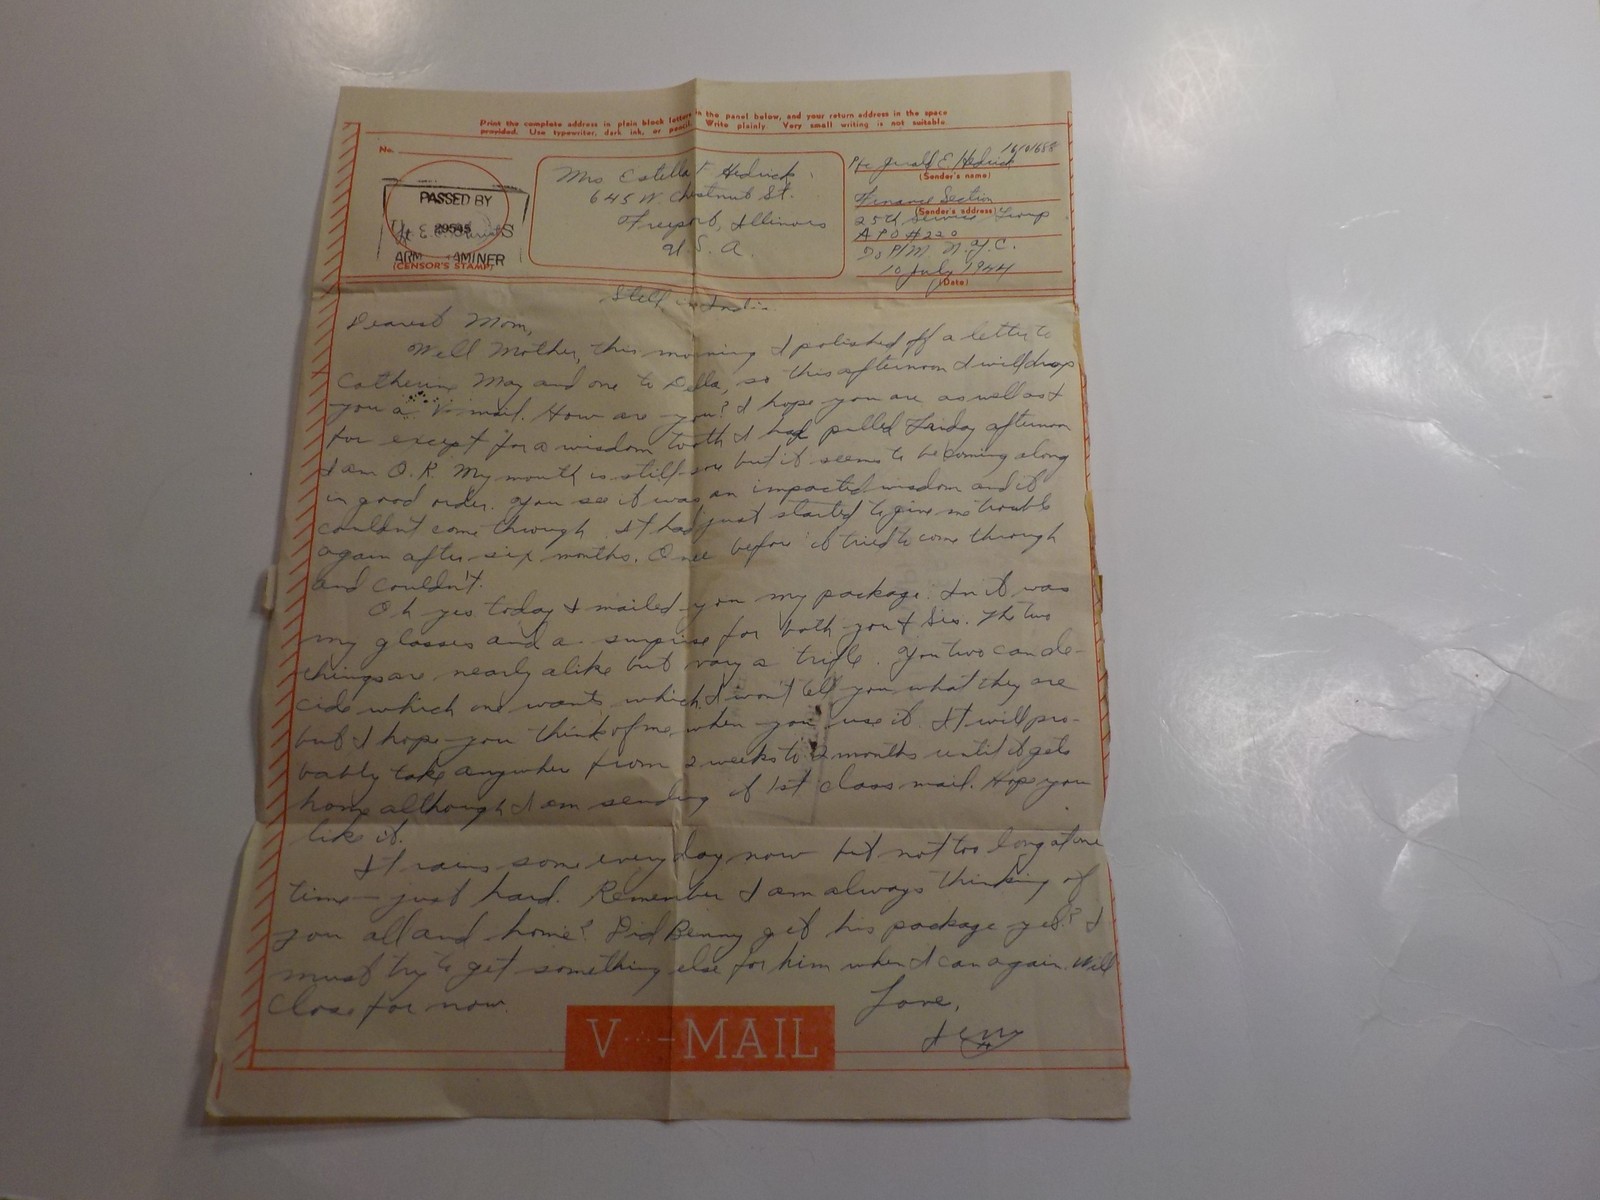 Print the complete address in plain block letters in the panel below, and your return address in the space
provided. Use typewriter, dark ink, or pencil. Write plainly. Very small writing is not suitable.
No.
PASSED BY
ARMY EXAMINER
(CENSOR'S STAMP)
Mrs Estella F Hedrick
645 W. Chestnut St.
Freeport, Illinois
U. S. A.
Pfc Jerald E. Hedrick
(Sender's name)
Finance Section
(Sender's address)
25th Service Group
APO #220
P/M N.Y.C.
10 July 1944
(Date)
Still in India
Dearest Mom,
Well Mother, this morning I polished off a letter to
Catherine May and one to Della, so this afternoon I will drop
you a V-mail. How are you? I hope you are as well as I
for except for a wisdom tooth I had pulled Friday afternoon
I am O.K. My mouth is still sore but it seems to be coming along
in good order. You see it was an impacted wisdom and it
couldn't come through. It had just started to give me trouble
again after six months. Once before it tried to come through
and couldn't.
Oh yes today I mailed you my package. In it was
my glasses and a surprise for both you & Sis. The two
things are nearly alike but vary a trifle. You two can de-
cide which one wants which. I won't tell you what they are
but I hope you think of me when you use it. It will pro-
bably take anywher from 2 weeks to 2 months until it gets
home although I am sending it 1st class mail. Hope you
like it.
It rains some every day now but not too long at one
time - just hard. Remember I am always thinking of
you all and home? Did Benny get his package yet? I
must try to get something else for him when I can again. Will
close for now.
Love,
Jerry
V···-MAIL